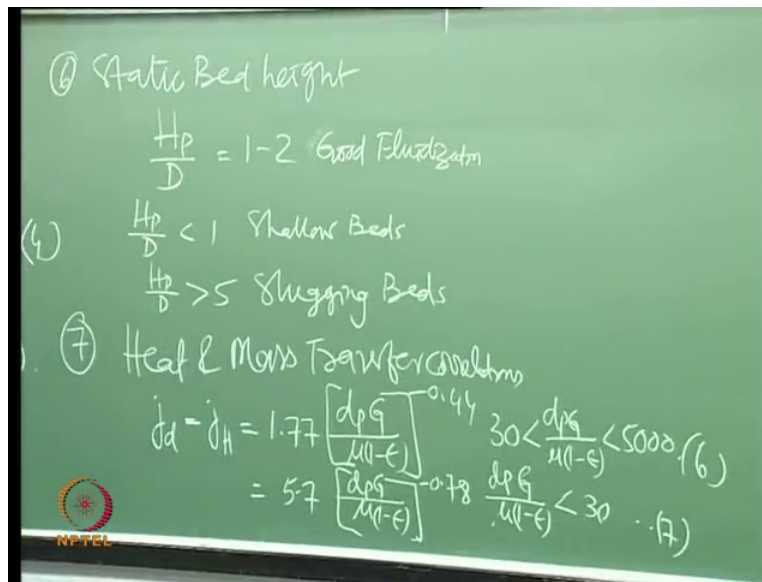 ⑥ Static Bed height
Hp/D = 1-2 Good Fluidizatn
(4) Hp/D < 1 Shallow Beds
Hp/D > 5 Slugging Beds
). ⑦ Heat & Mass Transfer correlatns
jd = jH = 1.77 [dpG/μ(1-ϵ)]^-0.44 30 < dpG/μ(1-ϵ) < 5000 .(6)
= 5.7 [dpG/μ(1-ϵ)]^-0.78 dpG/μ(1-ϵ) < 30 ..(7)
NPTEL